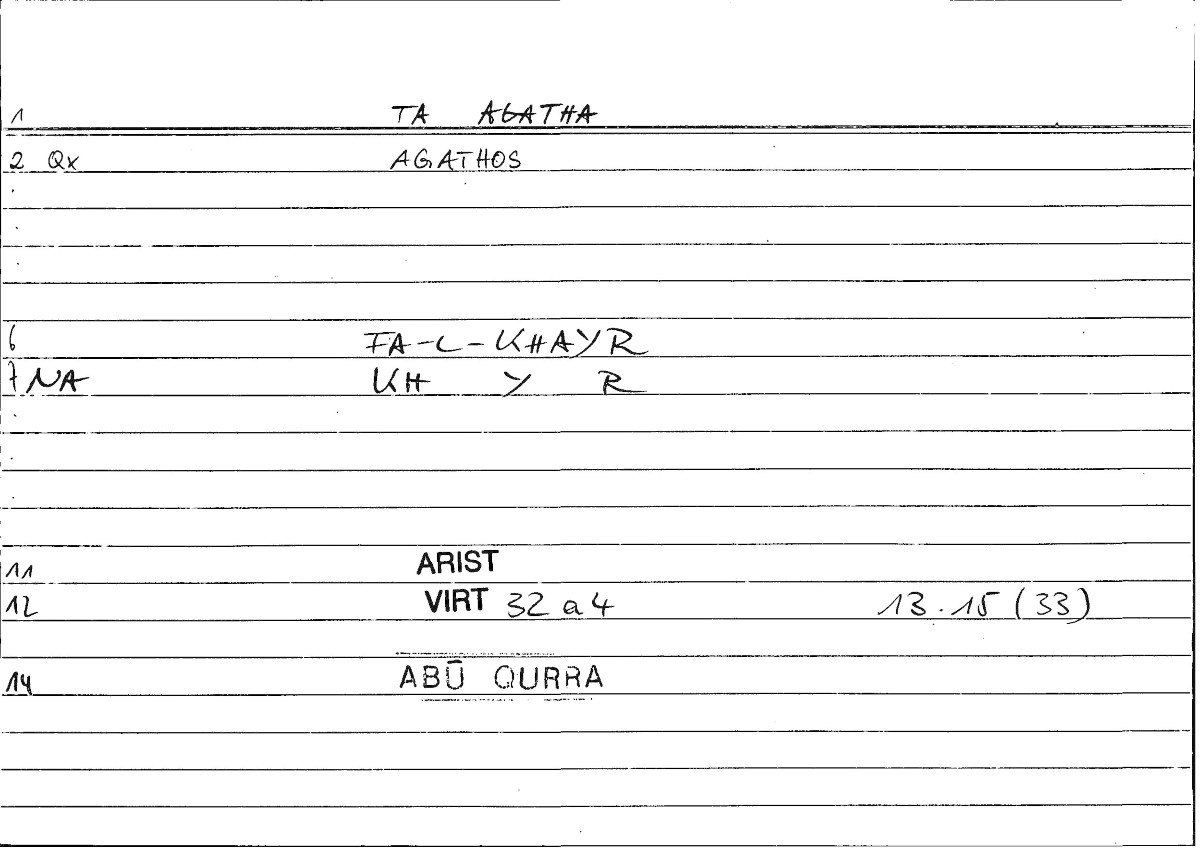 1 TA AGATHA
2 Qx AGATHOS
6 FA-L-KHAYR
7 NA KH Y R
11 ARIST
12 VIRT 32 a 4 13.15 (33)
14 ABŪ QURRA